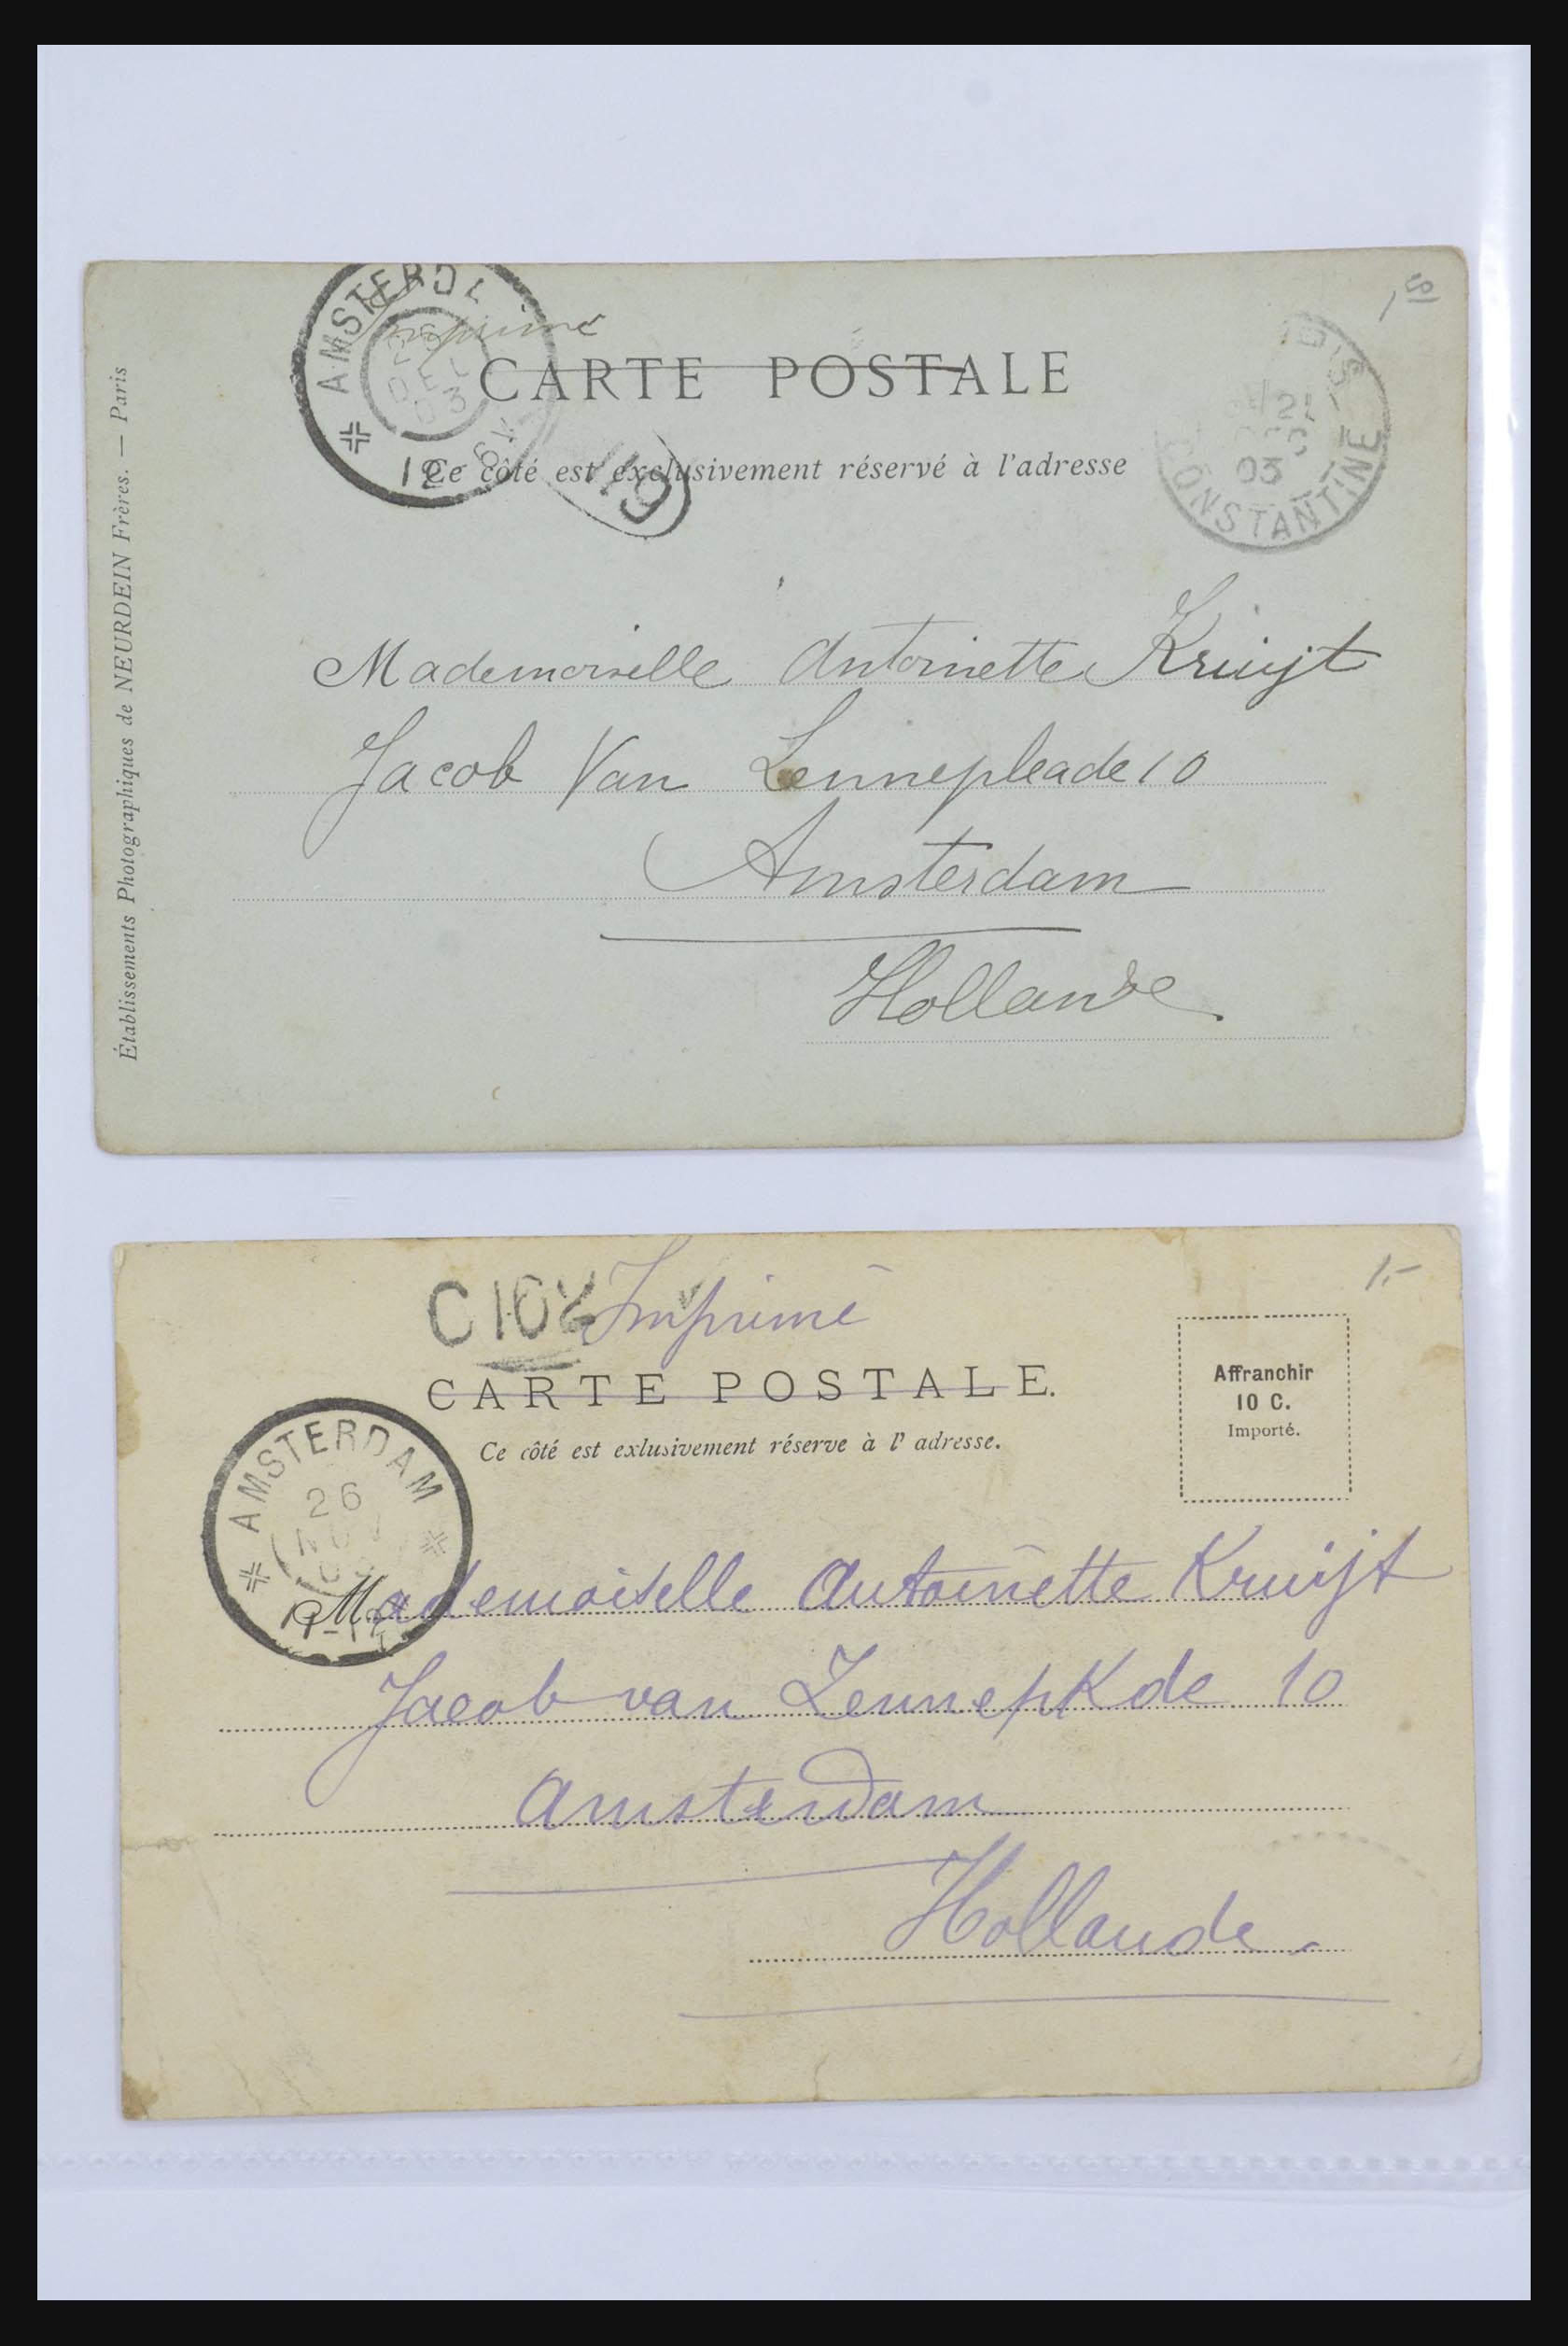 1 50
AMSTERD
Imprimé
25
DEC
03
CARTE POSTALE
21
03
CONSTANTINE
12
Ce côté est exclusivement réservé à l'adresse
Établissements Photographiques de NEURDEIN Frères. — Paris
Mademoiselle Antoinette Kruijt
Jacob Van Lennepleade 10
Amsterdam
Hollande
1.-
C102
Imprimé
CARTE POSTALE.
Ce côté est exlusivement réserve à l' adresse.
Affranchir
10 C.
Importé.
AMSTERDAM
26
NOV
Mademoiselle Antoinette Kruijt
Jacob van LennepKde 10
Amsterdam
Hollande